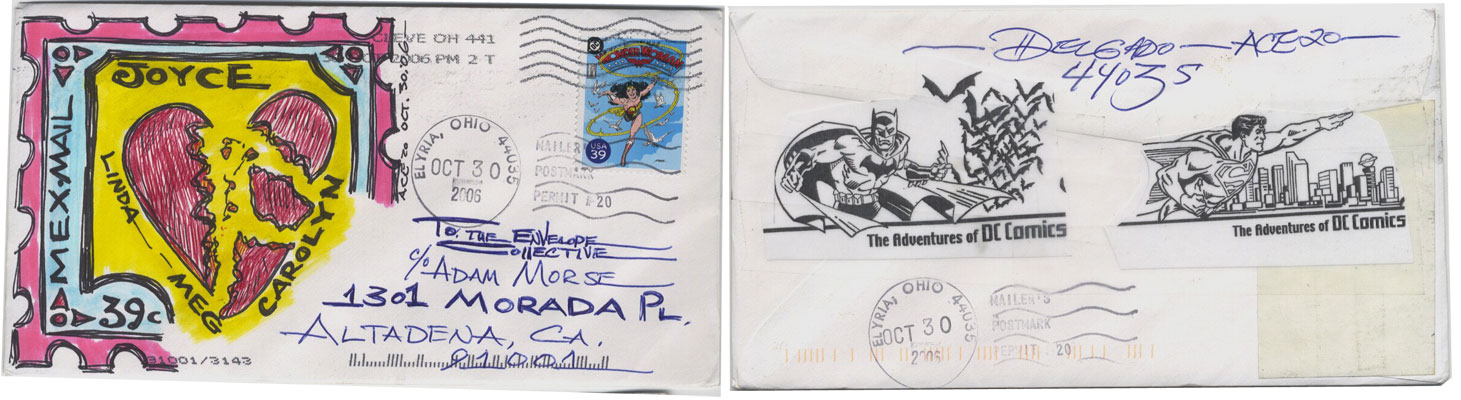 JOYCE
MEX-MAIL
LINDA — MEG
CAROLYN
39c
ACE20 OCT. 30.06
CLEVE OH 441
2006 PM 2 T
WONDER WOMAN
USA
39
ELYRIA, OHIO 44035
OCT 30
2006
MAILER'S
POSTMARK
PERMIT
20
To: THE ENVELOPE
COLLECTIVE
c/o ADAM MORSE
1301 MORADA PL.
ALTADENA, CA.
91001
31001/3143
DELGADO — ACE20
44035
The Adventures of DC Comics
The Adventures of DC Comics
ELYRIA, OHIO 44035
OCT 30
2006
MAILER'S
POSTMARK
PERMIT
20